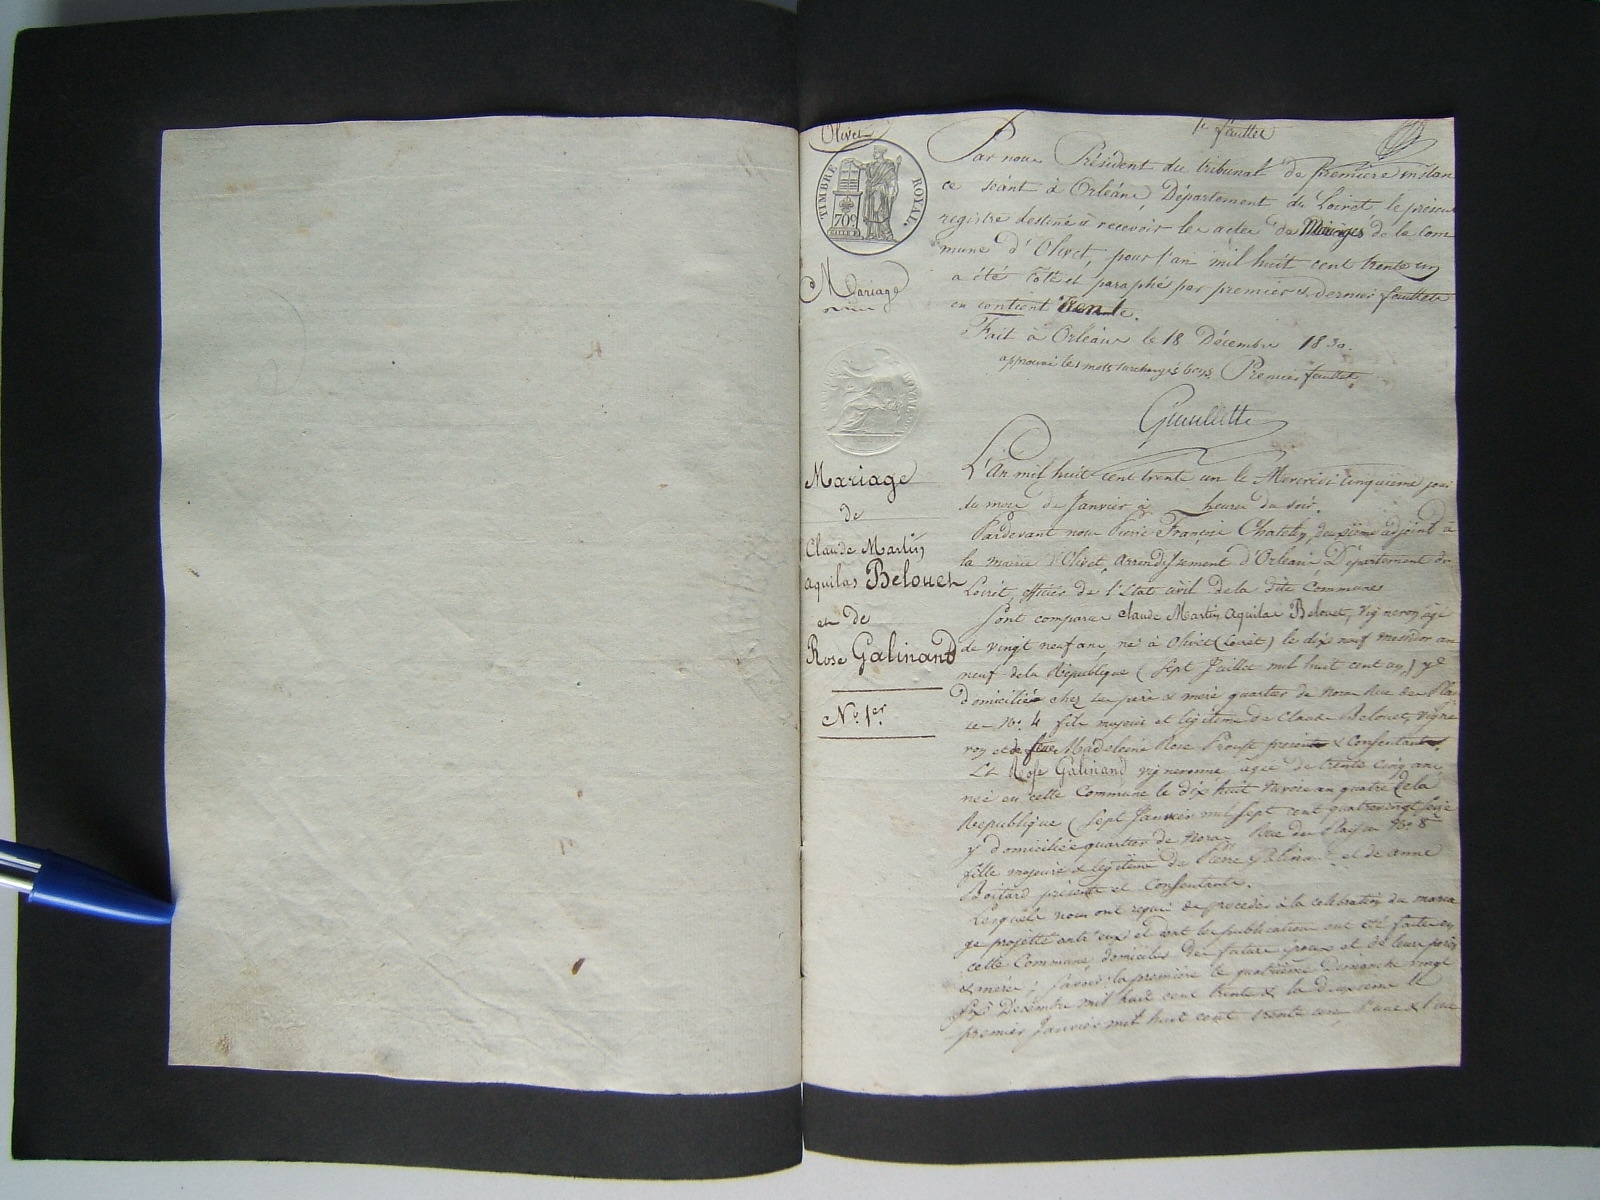 Olivet
1er feuillet
TIMBRE ROYAL.
709
Mariage
Par nous Président du tribunal de première instan
ce séant à Orléans, Département du Loiret, le présent
registre destiné à recevoir les actes de Mariages de la Com
mune d'Olivet, pour l'an mil huit cent trente un
a été coté et paraphé par premier et dernier feuillets
en contient Trente.
Fait à Orléans le 18 Décembre 1830.
approuvé les mots surchargés bons. Premier feuillet.
Mariage
de
Claude Martin
aquilas Belouet
et de
Rose Galinand
N.º 1.er
L'An mil huit cent trente un le Mercredi cinquième jour
du mois de Janvier à heures du soir.
Pardevant nous Pierre François deuxième adjoint à
la mairie d'Olivet, Arrondissement d'Orléans Département du
Loiret, officier de l'Etat civil de la dite Commune
Sont comparus Claude Martin Aquilas Belouet, Vigneron agé
de vingt neuf ans, né à Olivet (Loiret) le dix neuf messidor an
neuf de la République (Sept Juillet mil huit cent un,) y
Domicilié chez ses père & mere quartier de Rue des
N.º 4 fils majeur et légitime de Claude Belouet, vigne
ron et de feue Madeleine Rose Proust present & Consentant.
Et Rose Galinand vigneronne agée de trente cinq ans
née en cette Commune le dix huit nivose an quatre de la
République (Sept Janvier mil sept cent quatrevingt seize
y domiciliée quartier de Rue des N.º 8
fille majeure & légitime de Pierre Galinand et de anne
Boitard présents et Consentants.
Lesquels nous ont requis de proceder à la celebration du maria
ge projetté entr'eux et dont les publications ont été faites en
cette Commune domiciles des futurs Epoux et de leurs pères
& meres; Savoir: la première le quatrième Dimanche vingt
six Décembre mil huit cent trente & la deuxieme le
premier Janvier mil huit cent trente un, l'une & l'au